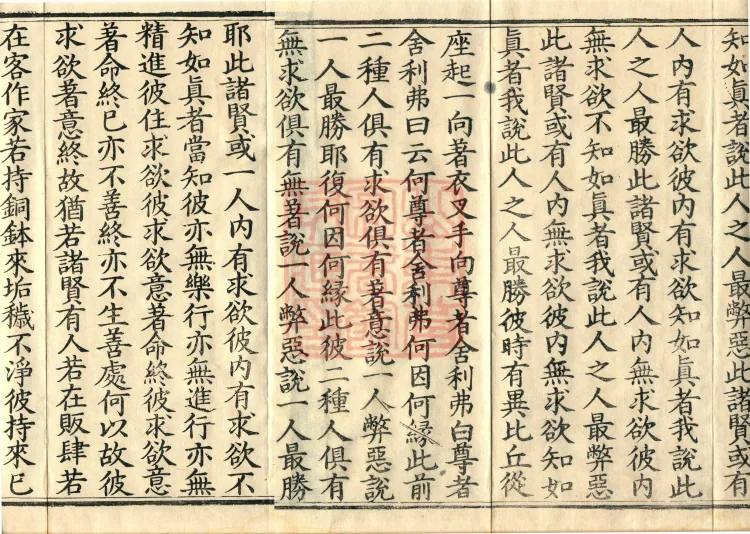 知如眞者說此人之人最弊惡此諸賢或有
人內有求欲彼內有求欲知如眞者我說此
人之人最勝此諸賢或有人內無求欲彼內
無求欲不知如眞者我說此人之人最弊惡
此諸賢或有人內無求欲彼內無求欲知如
眞者我說此人之人最勝彼時有異比丘從
座起一向著衣叉手向尊者舍利弗白尊者
舍利弗曰云何尊者舍利弗何因何緣此前
二種人俱有求欲俱有著意說一人弊惡說
一人最勝耶復何因何緣此彼二種人俱有
無求欲俱有無著說一人弊惡說一人最勝
耶此諸賢或一人內有求欲彼內有求欲不
知如眞者當知彼亦無樂行亦無進行亦無
精進彼住求欲彼求欲意著命終彼求欲意
著命終已亦不善終亦不生善處何以故彼
求欲著意終故猶若諸賢有人若在販肆若
在客作家若持銅鉢來垢穢不淨彼持來已